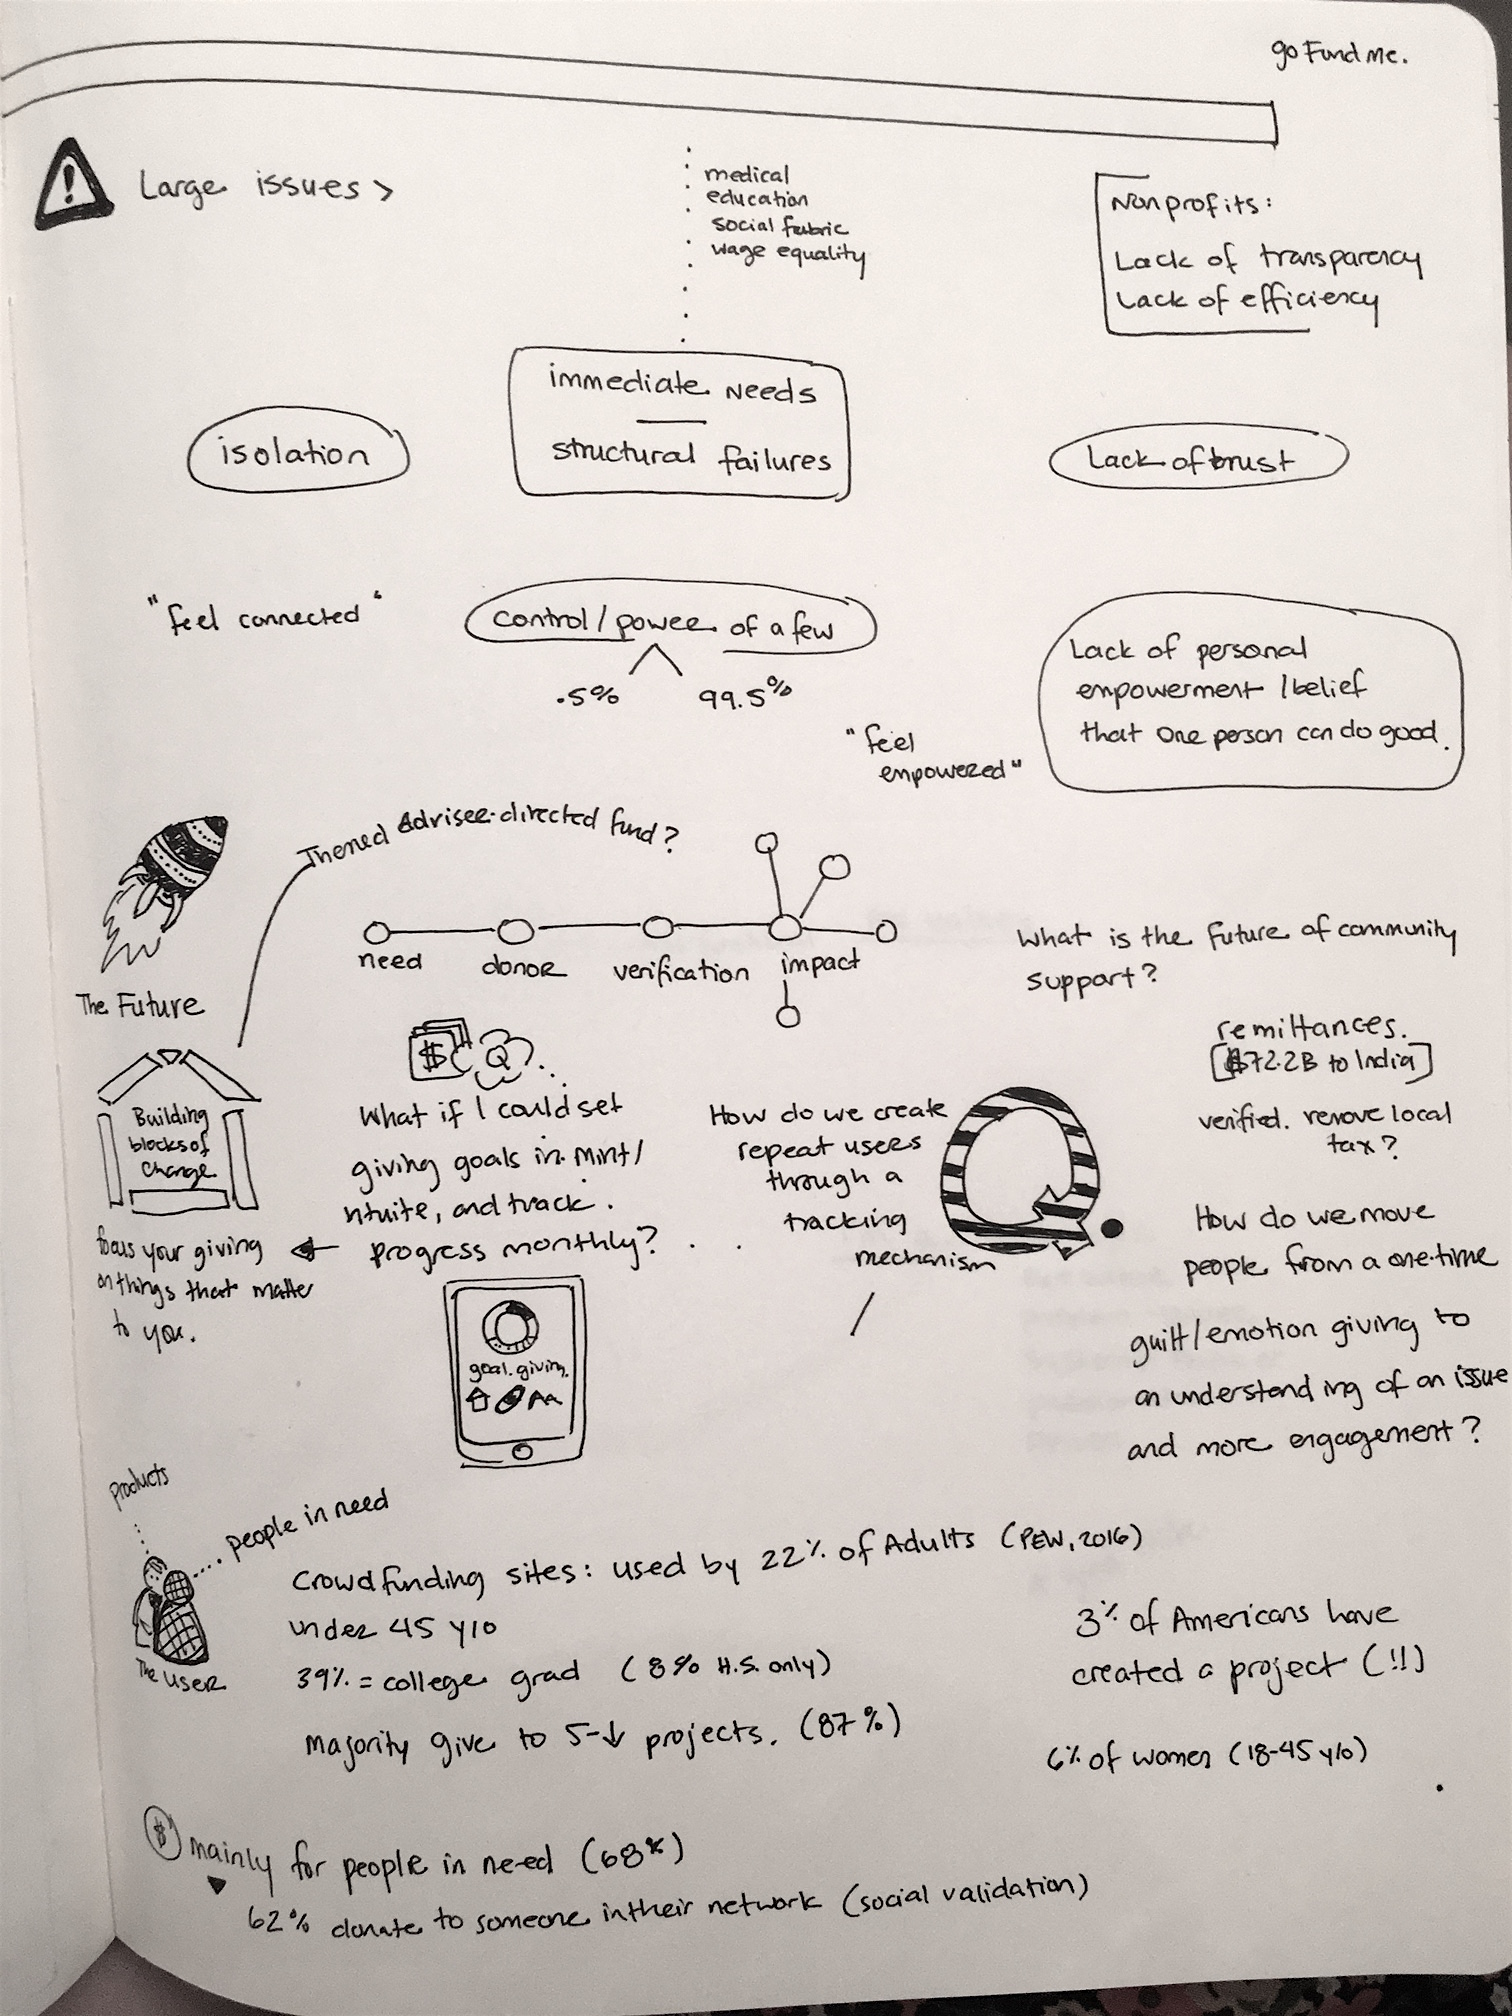 go Fund Me.
! Large issues >
medical
education
social fabric
wage equality
Nonprofits:
Lack of transparency
Lack of efficiency
isolation
immediate needs
structural failures
Lack of trust
"feel connected"
control / power of a few
.5% 99.5%
"feel
empowered"
Lack of personal
empowerment / belief
that one person can do good.
Themed Advisee-directed fund?
The Future
need donor verification impact
What is the future of community
support?
remittances.
[$72.2B to India]
verified. remove local
tax?
Building
blocks of
Change
focus your giving
on things that matter
to you.
$ Q
What if I could set
giving goals in Mint/
ntuite, and track.
progress monthly? . .
goal.giving.
How do we create
repeat users
through a
tracking
mechanism
Q.
How do we move
people from a one-time
guilt/emotion giving to
an understanding of an issue
and more engagement?
products
people in need
The User
Crowdfunding sites: used by 22% of Adults (PEW, 2016)
under 45 y/o
39% = college grad (8% H.S. only)
majority give to 5-↓ projects. (87%)
3% of Americans have
created a project (!!)
6% of women (18-45 y/o)
$ mainly for people in need (68%)
62% donate to someone in their network (social validation)